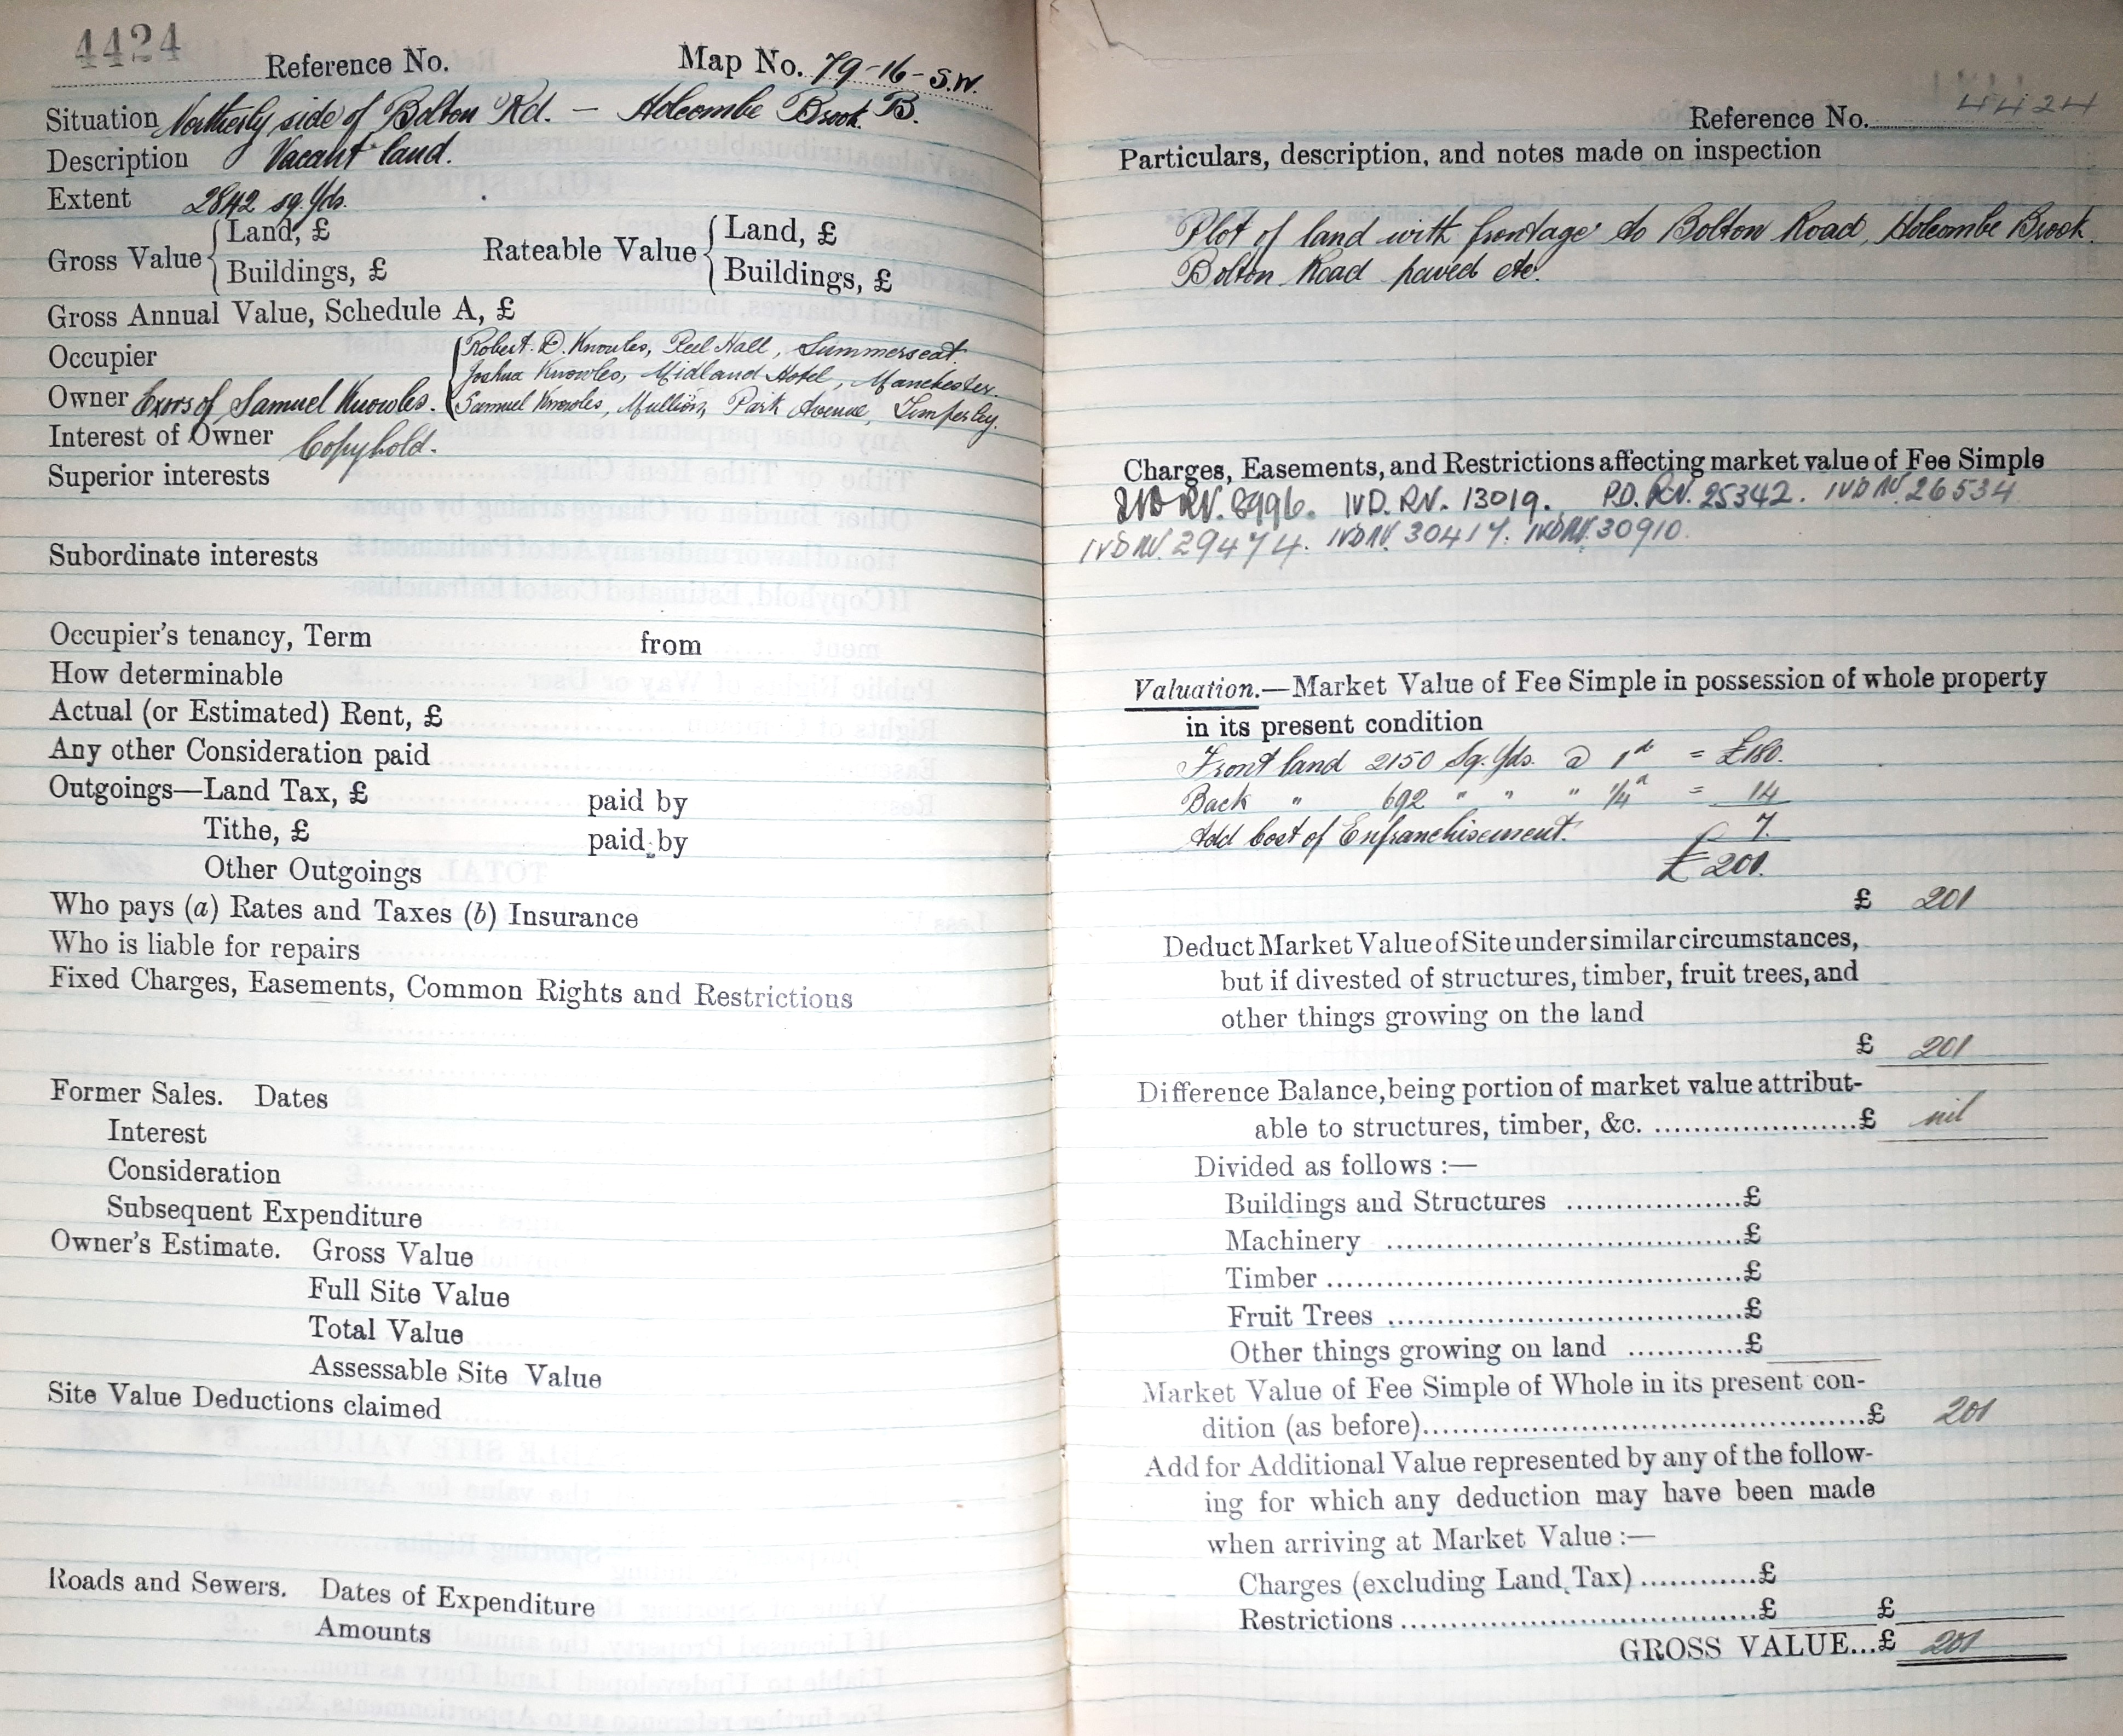 4424
Reference No. Map No. 79-16-S.W.
Situation Northerly side of Bolton Rd. — Holcombe Brook. B.
Description Vacant land.
Extent 2842 sq. Yds.
Gross Value { Land, £ Rateable Value { Land, £
Buildings, £ Buildings, £
Gross Annual Value, Schedule A, £
Occupier { Robert. D. Knowles, Peel Hall, Summerseat.
Joshua Knowles, Midland Hotel, Manchester.
Owner Exors of Samuel Knowles. Samuel Knowles, Mullion, Park Avenue, Timperley.
Interest of Owner Copyhold.
Superior interests
Subordinate interests
Occupier's tenancy, Term from
How determinable
Actual (or Estimated) Rent, £
Any other Consideration paid
Outgoings—Land Tax, £ paid by
Tithe, £ paid by
Other Outgoings
Who pays (a) Rates and Taxes (b) Insurance
Who is liable for repairs
Fixed Charges, Easements, Common Rights and Restrictions
Former Sales. Dates
Interest
Consideration
Subsequent Expenditure
Owner's Estimate. Gross Value
Full Site Value
Total Value
Assessable Site Value
Site Value Deductions claimed
Roads and Sewers. Dates of Expenditure
Amounts
Reference No. 4424
Particulars, description, and notes made on inspection
Plot of land with frontage to Bolton Road, Holcombe Brook.
Bolton Road paved etc.
Charges, Easements, and Restrictions affecting market value of Fee Simple
RV. 8996. IVD. RV. 13019. P.D. RV. 25342. IVD RV. 26534
IVD RV. 29474. IVD RV. 30417. IVD RV. 30910.
Valuation.—Market Value of Fee Simple in possession of whole property
in its present condition
Front land 2150 Sq. Yds. @ 1/8 = £180.
Back " 692 " " " 1/4 = 14
Add Cost of Enfranchisement. 7.
£ 201.
£ 201
Deduct Market Value of Site under similar circumstances,
but if divested of structures, timber, fruit trees, and
other things growing on the land
£ 201
Difference Balance, being portion of market value attribut-
able to structures, timber, &c. ....................£ nil
Divided as follows :—
Buildings and Structures ..................£
Machinery ....................................£
Timber ..........................................£
Fruit Trees ....................................£
Other things growing on land ............£
Market Value of Fee Simple of Whole in its present con-
dition (as before)............................................£ 201
Add for Additional Value represented by any of the follow-
ing for which any deduction may have been made
when arriving at Market Value :—
Charges (excluding Land Tax)............£
Restrictions ....................................£ £
GROSS VALUE...£ 201